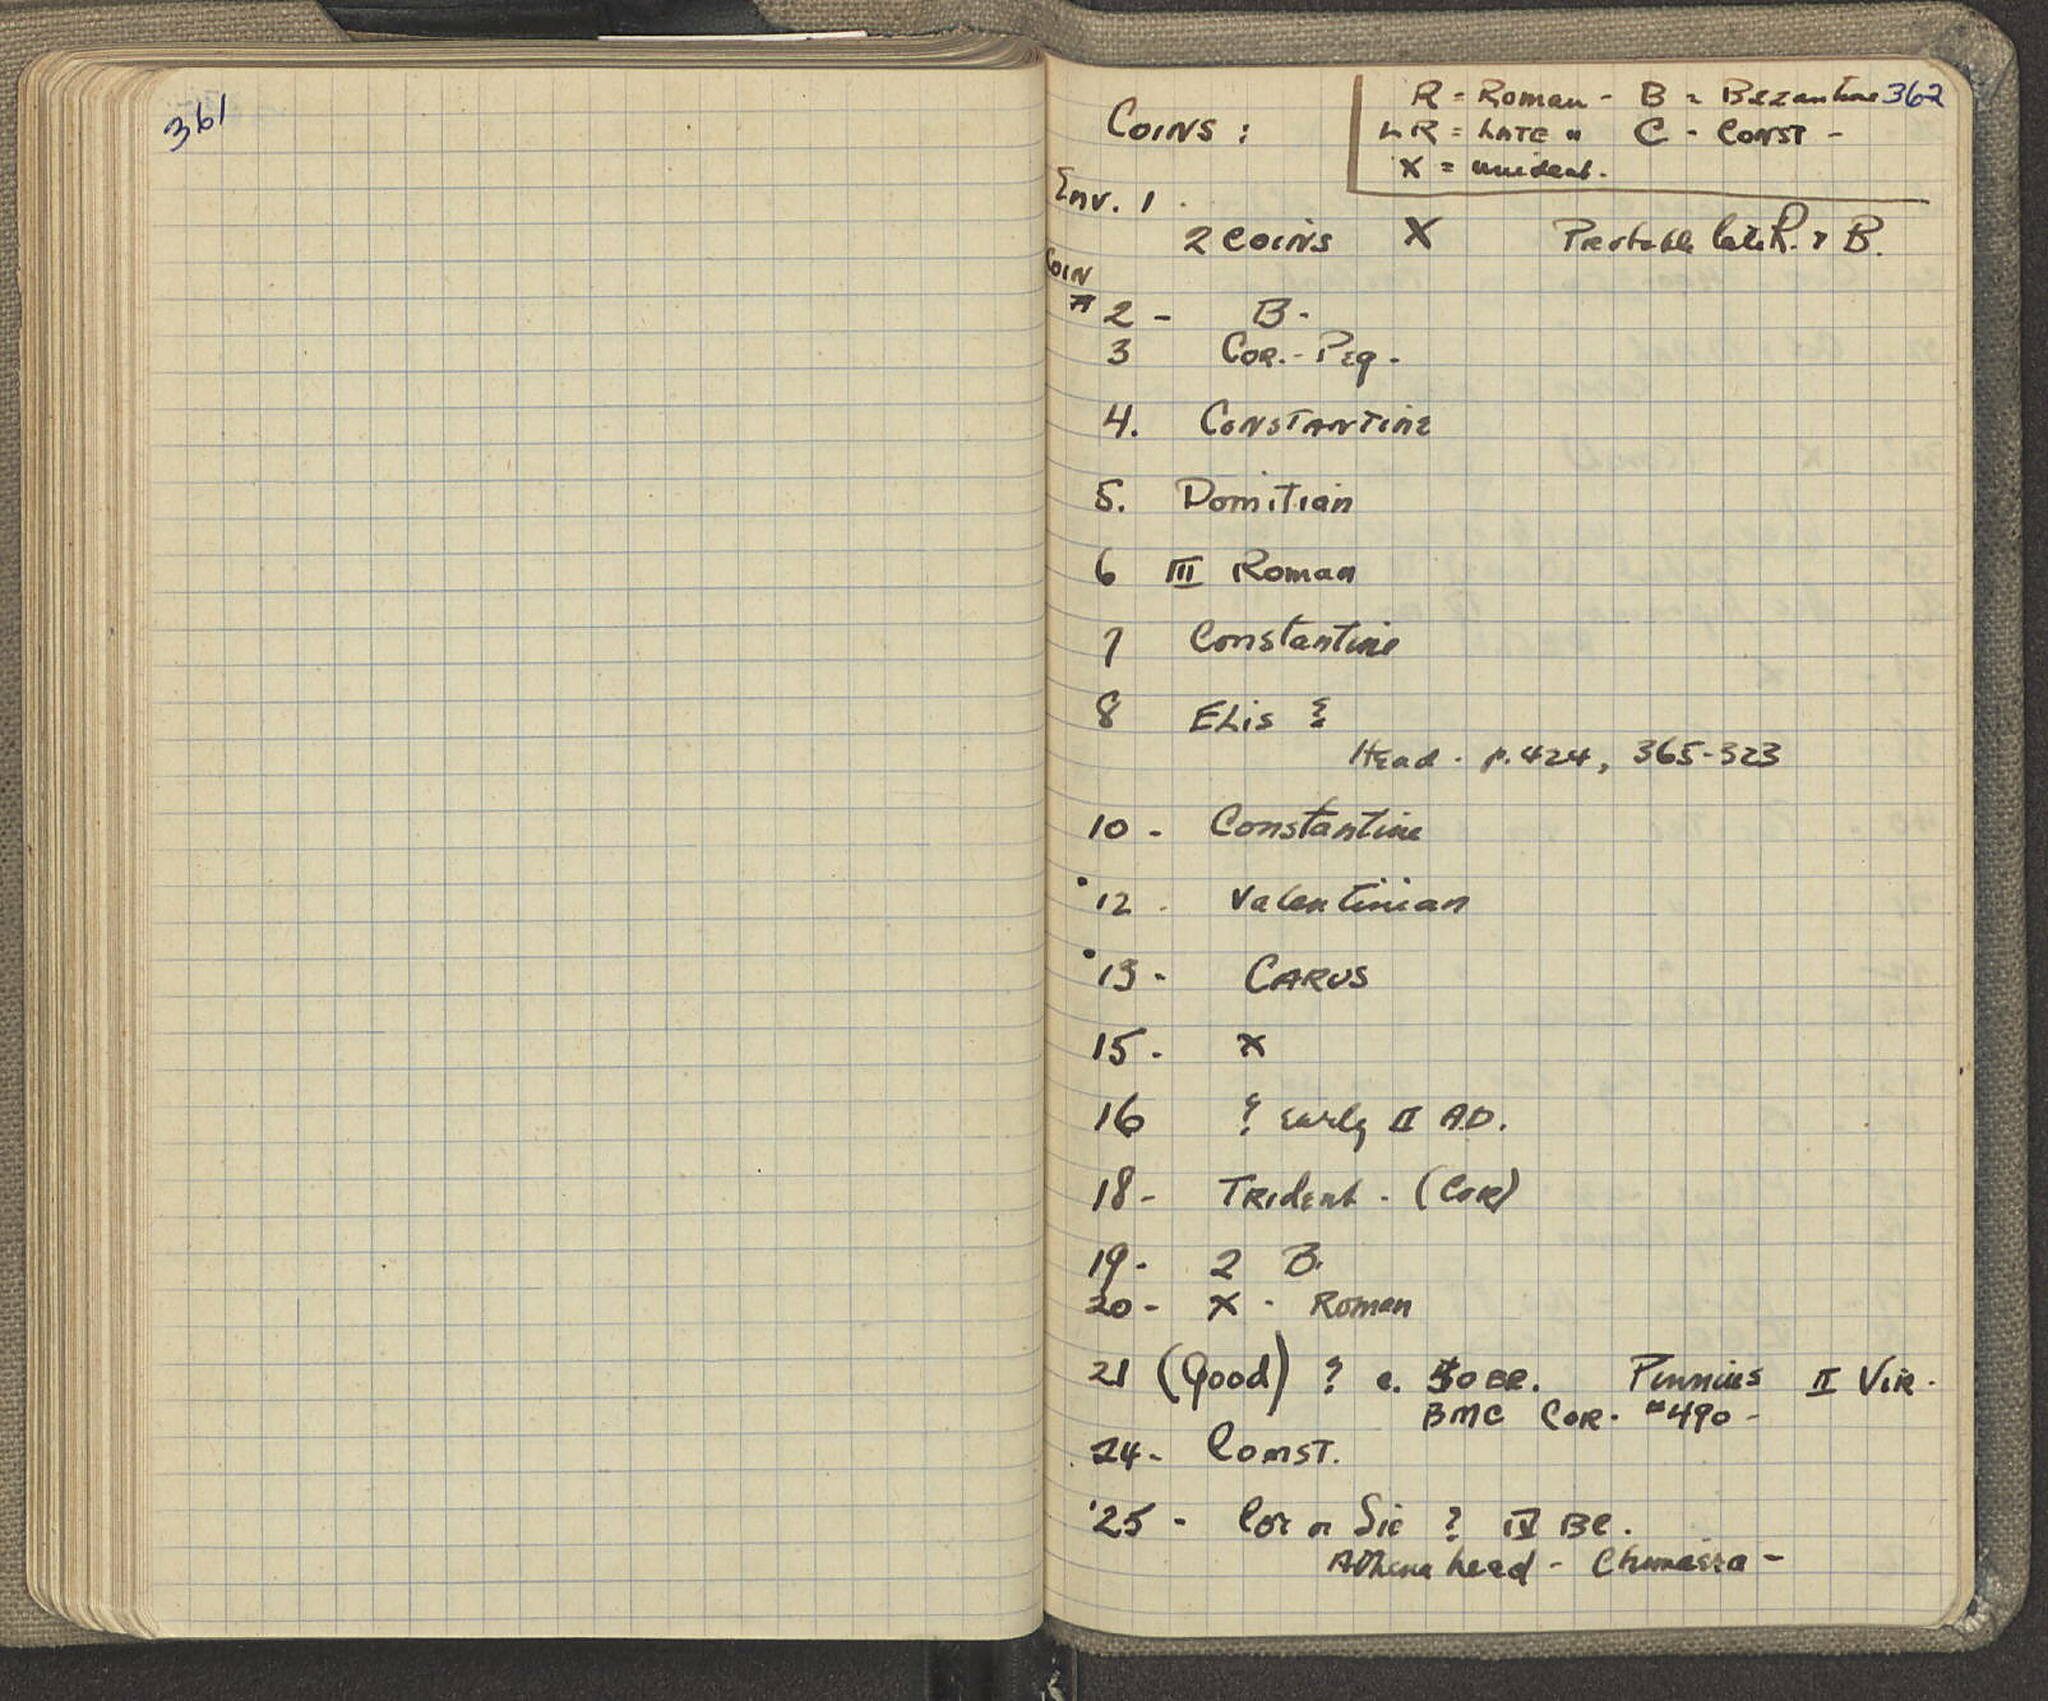 361
362
R = Roman - B = Bezantine
COINS : LR = LATE " C - CONST -
X = unident.
Env. 1
2 COINS X Probable late R. & B.
COIN
# 2 - B -
3 COR. - Peg -
4. CONSTANTINE
5. Domitian
6 III Roman
7 Constantine
8 ELis ?
Head - p. 424, 365-323
10 - Constantine
12 - Valentinian
13 - CARUS
15 - X
16 ? early II A.D.
18 - TRident - (COR)
19 - 2 B.
20 - X - Roman
21 (Good) ? c. 50 BC. II VIR -
BMC COR. #490 -
24 - Const.
25 - Cor or Sic ? IV BC.
Athena head - Chimaera -